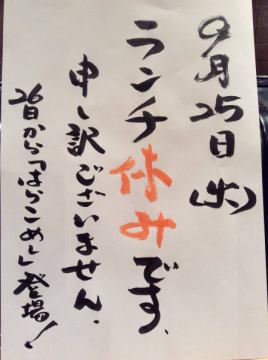 9月25日(火)
ランチ休みです、
申し訳ございません。
26日から「はらこめし」登場!